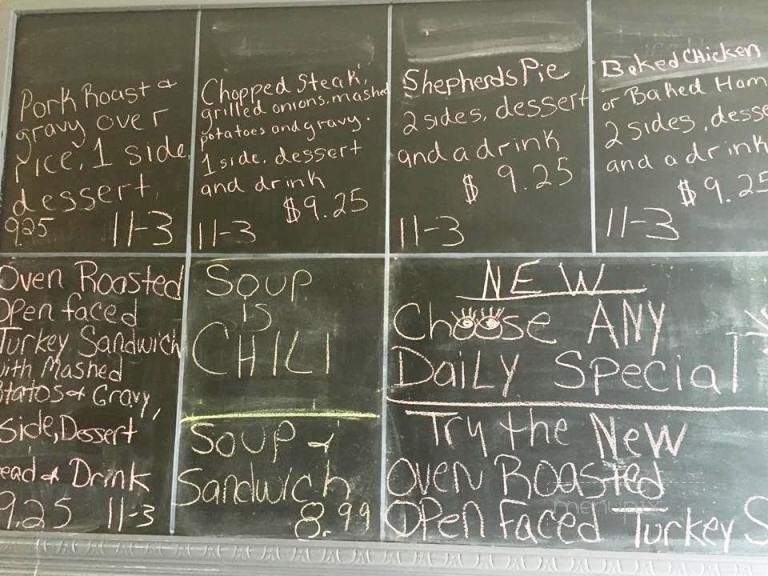 Pork Roast &
gravy over
rice, 1 side,
dessert,
9.25 11-3
Chopped Steak,
grilled onions, mashed
potatoes and gravy.
1 side, dessert
and drink
$9.25
11-3
Shepherds Pie
2 sides, dessert
and a drink
$ 9.25
11-3
Baked Chicken
or Baked Ham
2 sides, desse
and a drink
$9.25
11-3
Oven Roasted
Open faced
Turkey Sandwich
with Mashed
otatos & Gravy,
Side, Dessert
ead & Drink
9.25 11-3
Soup
is
CHILI
Soup &
Sandwich
8.99
NEW
Choose ANY
Daily Special
Try the New
Oven Roasted
Open Faced Turkey S